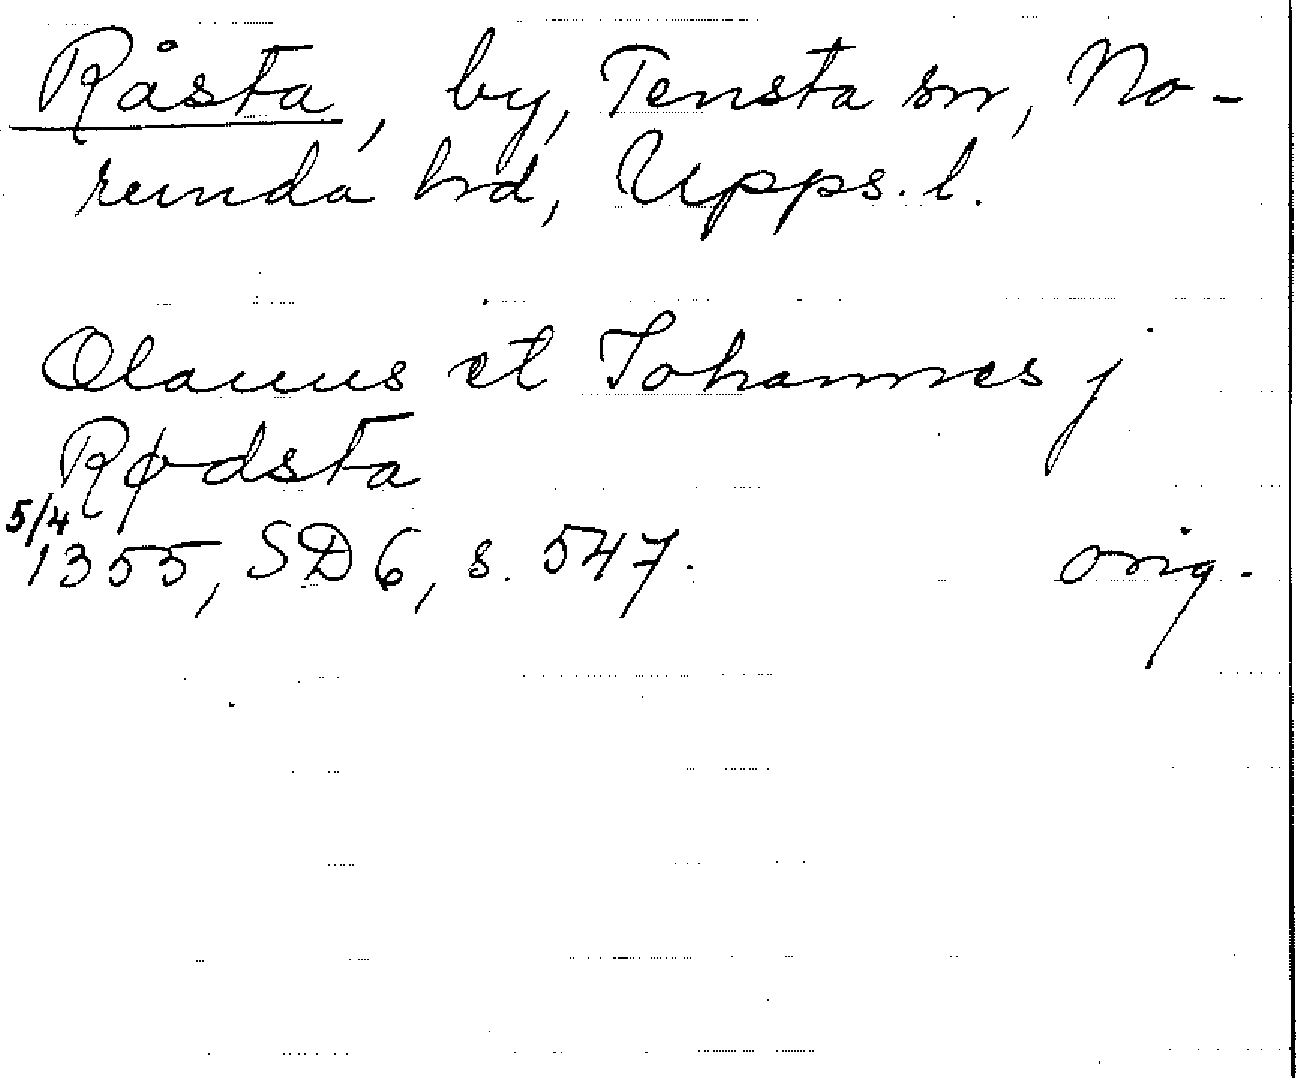 Råsta, by, Tensta sn, No-
runda hd, Upps. l.
Olauus et Johannes j
Rødsta
5/4
1355, SD 6, s. 547. orig.